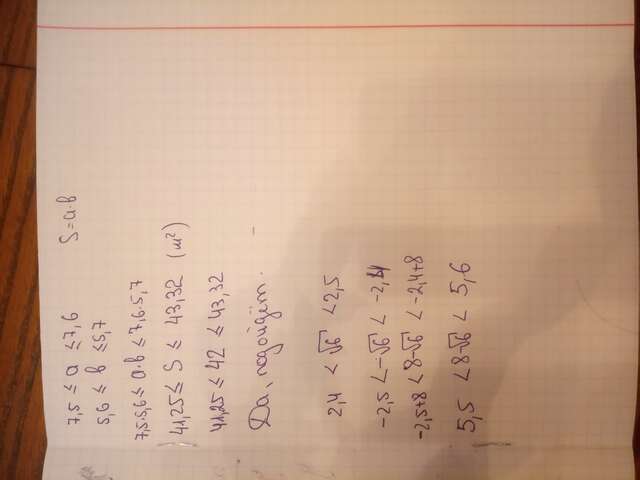 7,5 ≤ a ≤ 7,6 S = a·b
5,6 ≤ b ≤ 5,7
7,5·5,6 ≤ a·b ≤ 7,6·5,7
41,25 ≤ S ≤ 43,32 (м²)
41,25 ≤ 42 ≤ 43,32
Да, подойдёт.
2,4 < √6 < 2,5
-2,5 < -√6 < -2,4
-2,5+8 < 8-√6 < -2,4+8
5,5 < 8-√6 < 5,6